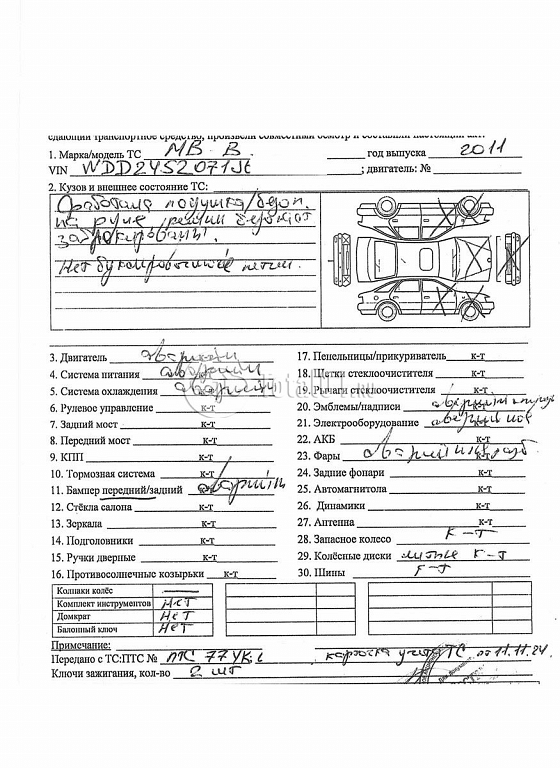 сдающий транспортное средство, произвели совместный осмотр и составили настоящий акт:
1. Марка/модель ТС MB B год выпуска 2011
VIN WDD2452071J ; двигатель: №
2. Кузов и внешнее состояние ТС:
Сработала подушка/безоп.
на руле, ремни безопасн
заблокированы.
Нет буксировочной петли.
3. Двигатель аварийн к-т
4. Система питания аварийн
5. Система охлаждения аварийн
6. Рулевое управление к-т
7. Задний мост к-т
8. Передний мост к-т
9. КПП к-т
10. Тормозная система к-т
11. Бампер передний/задний аварийн
12. Стёкла салона к-т
13. Зеркала к-т
14. Подголовники к-т
15. Ручки дверные к-т
16. Противосолнечные козырьки к-т
17. Пепельницы/прикуриватель к-т
18. Щетки стеклоочистителя к-т
19. Рычаги стеклоочистителя к-т
20. Эмблемы/надписи аварийн
21. Электрооборудование аварийное
22. АКБ к-т
23. Фары аварийн
24. Задние фонари к-т
25. Автомагнитола к-т
26. Динамики к-т
27. Антенна к-т
28. Запасное колесо к-т
29. Колёсные диски литые к-т
30. Шины к-т
Колпаки колёс —
Комплект инструментов НЕТ
Домкрат НЕТ
Балонный ключ НЕТ
Примечание:
Передано с ТС:ПТС № ПТС 77 УК карточка учета ТС от 11.11.24
Ключи зажигания, кол-во 2 шт